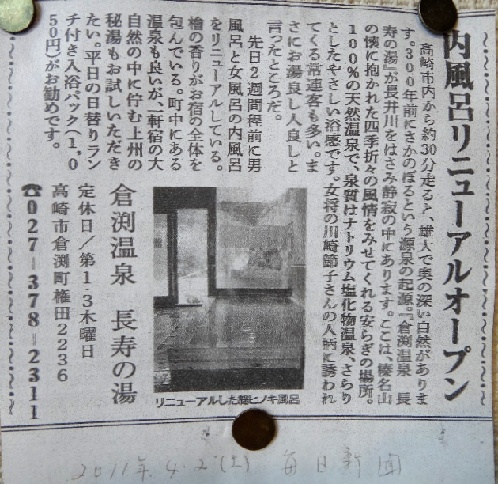 内風呂リニューアルオープン
高崎市内から約30分走ると、雄大で奥の深い自然がありま
す。300年前にさかのぼるという源泉の起源。『倉渕温泉 長
寿の湯』が長井川をはさみ静寂の中にあります。ここは、榛名山
の懐に抱かれた四季折々の風情をみせてくれる安らぎの場所。
100％の天然温泉で、泉質はナトリウム塩化物温泉、さらり
としたやさしい浴感です。女将の川崎節子さんの人柄に誘われ
てくる常連客も多い。ま
さにお湯良し人良しと
言ったところだ。
先日2週間程前に男
風呂と女風呂の内風呂
をリニューアルしている。
檜の香りがお宿の全体を
包んでいる。町中にある
温泉も良いが、一軒宿の大
自然の中に佇む上州の
秘湯もお試しいただき
たい。平日の日替りラン
チ付き入浴パック(1,0
50円)がお勧めです。
リニューアルした総ヒノキ風呂
倉渕温泉 長寿の湯
定休日／第1・3木曜日
高崎市倉渕町権田2236
☎027-378-2311
2011年.4.2(土) 毎日新聞